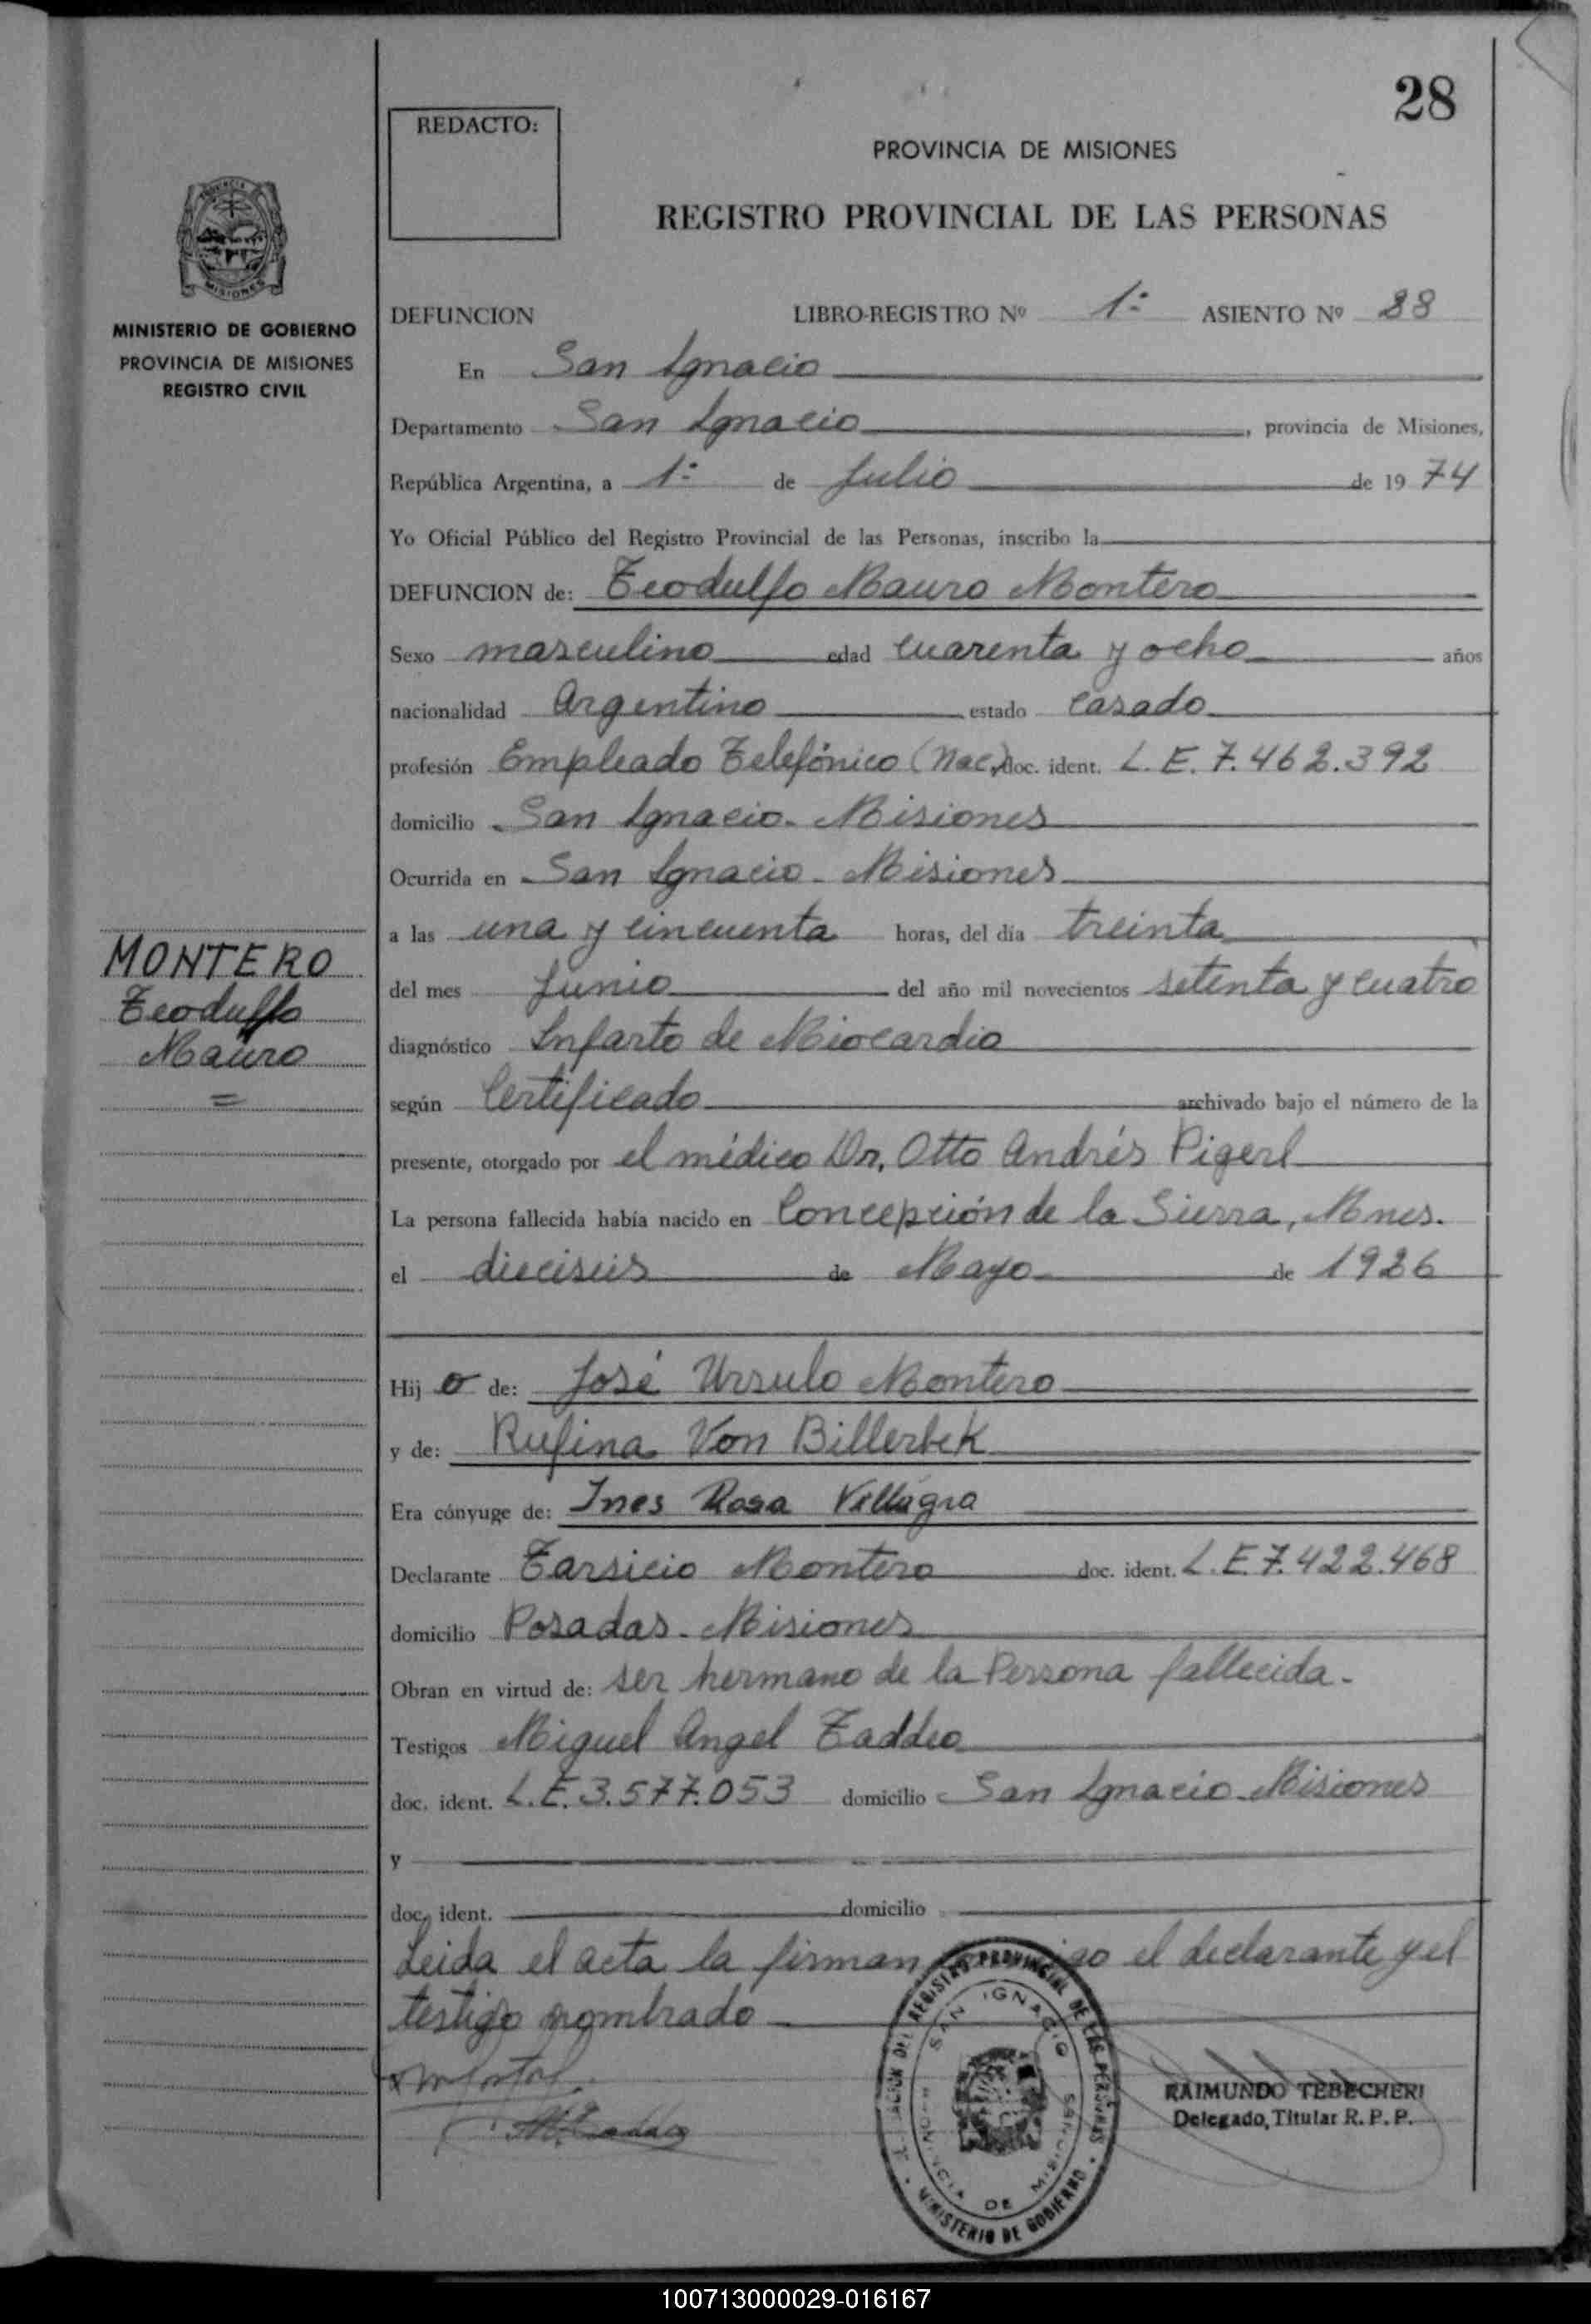 28
REDACTO:
PROVINCIA DE MISIONES
REGISTRO PROVINCIAL DE LAS PERSONAS
MISIONES
MINISTERIO DE GOBIERNO
PROVINCIA DE MISIONES
REGISTRO CIVIL
DEFUNCION LIBRO-REGISTRO Nº 1º ASIENTO Nº 28
En San Ignacio
Departamento San Ignacio, provincia de Misiones,
República Argentina, a 1º de Julio de 1974
Yo Oficial Público del Registro Provincial de las Personas, inscribo la
DEFUNCION de: Teodulfo Mauro Montero
Sexo masculino edad cuarenta y ocho años
nacionalidad Argentino estado casado
profesión Empleado Telefónico (Nac) doc. ident. L.E. 7.462.392
domicilio San Ignacio - Misiones
Ocurrida en San Ignacio - Misiones
a las una y cincuenta horas, del día treinta
del mes Junio del año mil novecientos setenta y cuatro
diagnóstico Infarto de Miocardio
según Certificado archivado bajo el número de la
presente, otorgado por el médico Dr. Otto Andrés Pigerl
La persona fallecida había nacido en Concepción de la Sierra, Mnes.
el dieciseis de Mayo de 1926
MONTERO
Teodulfo
Mauro
=
Hijo de: José Ursulo Montero
y de: Rufina Von Billerbek
Era cónyuge de: Ines Rosa Villagra
Declarante Tarsicio Montero doc. ident. L.E 7.422.468
domicilio Posadas - Misiones
Obran en virtud de: ser hermano de la Persona fallecida.-
Testigos Miguel Angel Taddeo
doc. ident. L.E. 3.577.053 domicilio San Ignacio - Misiones
y
doc. ident. domicilio
Leida el acta la firman el declarante y el
testigo nombrado
REGISTRO PROVINCIAL DE LAS PERSONAS
SAN IGNACIO
PROVINCIA DE MISIONES
MINISTERIO DE GOBIERNO
RAIMUNDO TEBECHERI
Delegado, Titular R. P. P.
100713000029-016167